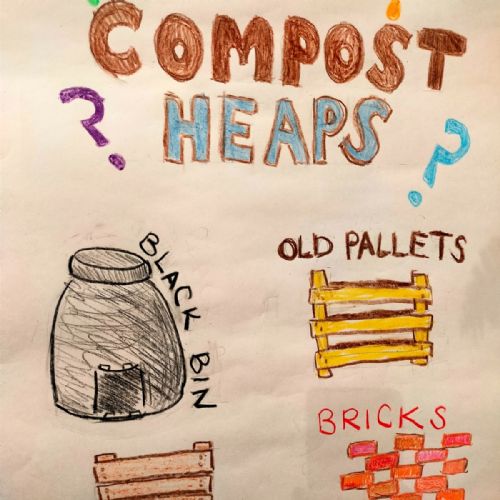 COMPOST
HEAPS
? ?
BLACK BIN
OLD PALLETS
BRICKS